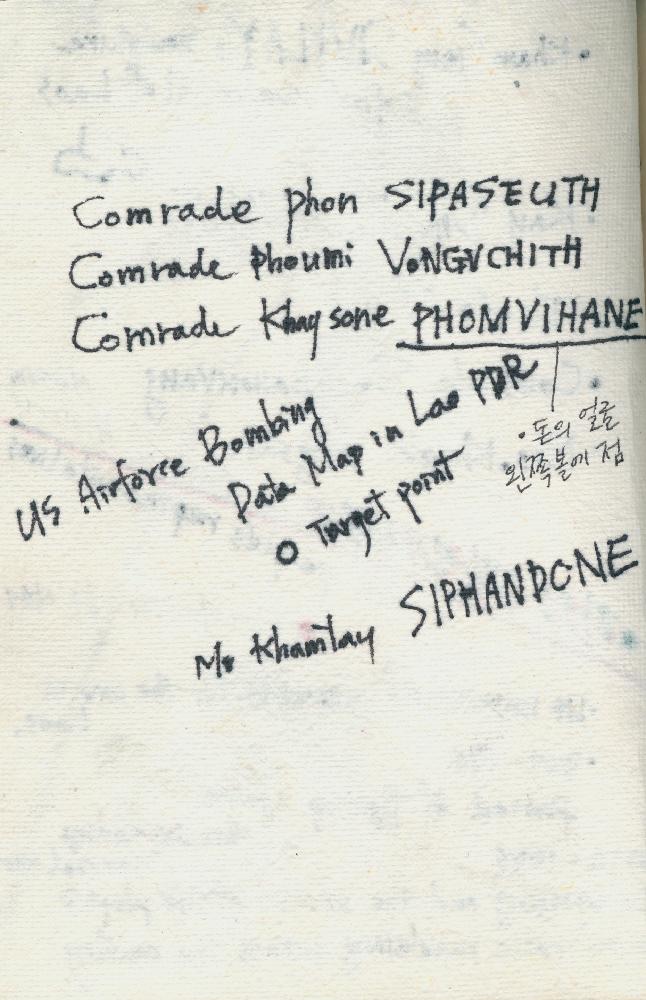 Comrade phon SIPASEUTH
Comrade phoumi VONGVCHITH
Comrade Khaysone PHOMVIHANE
· 돈의 얼굴
왼쪽볼에 점
US Airforce Bombing
Data Map in Lao PDR
O Target point
Mr Khamtay SIPHANDONE